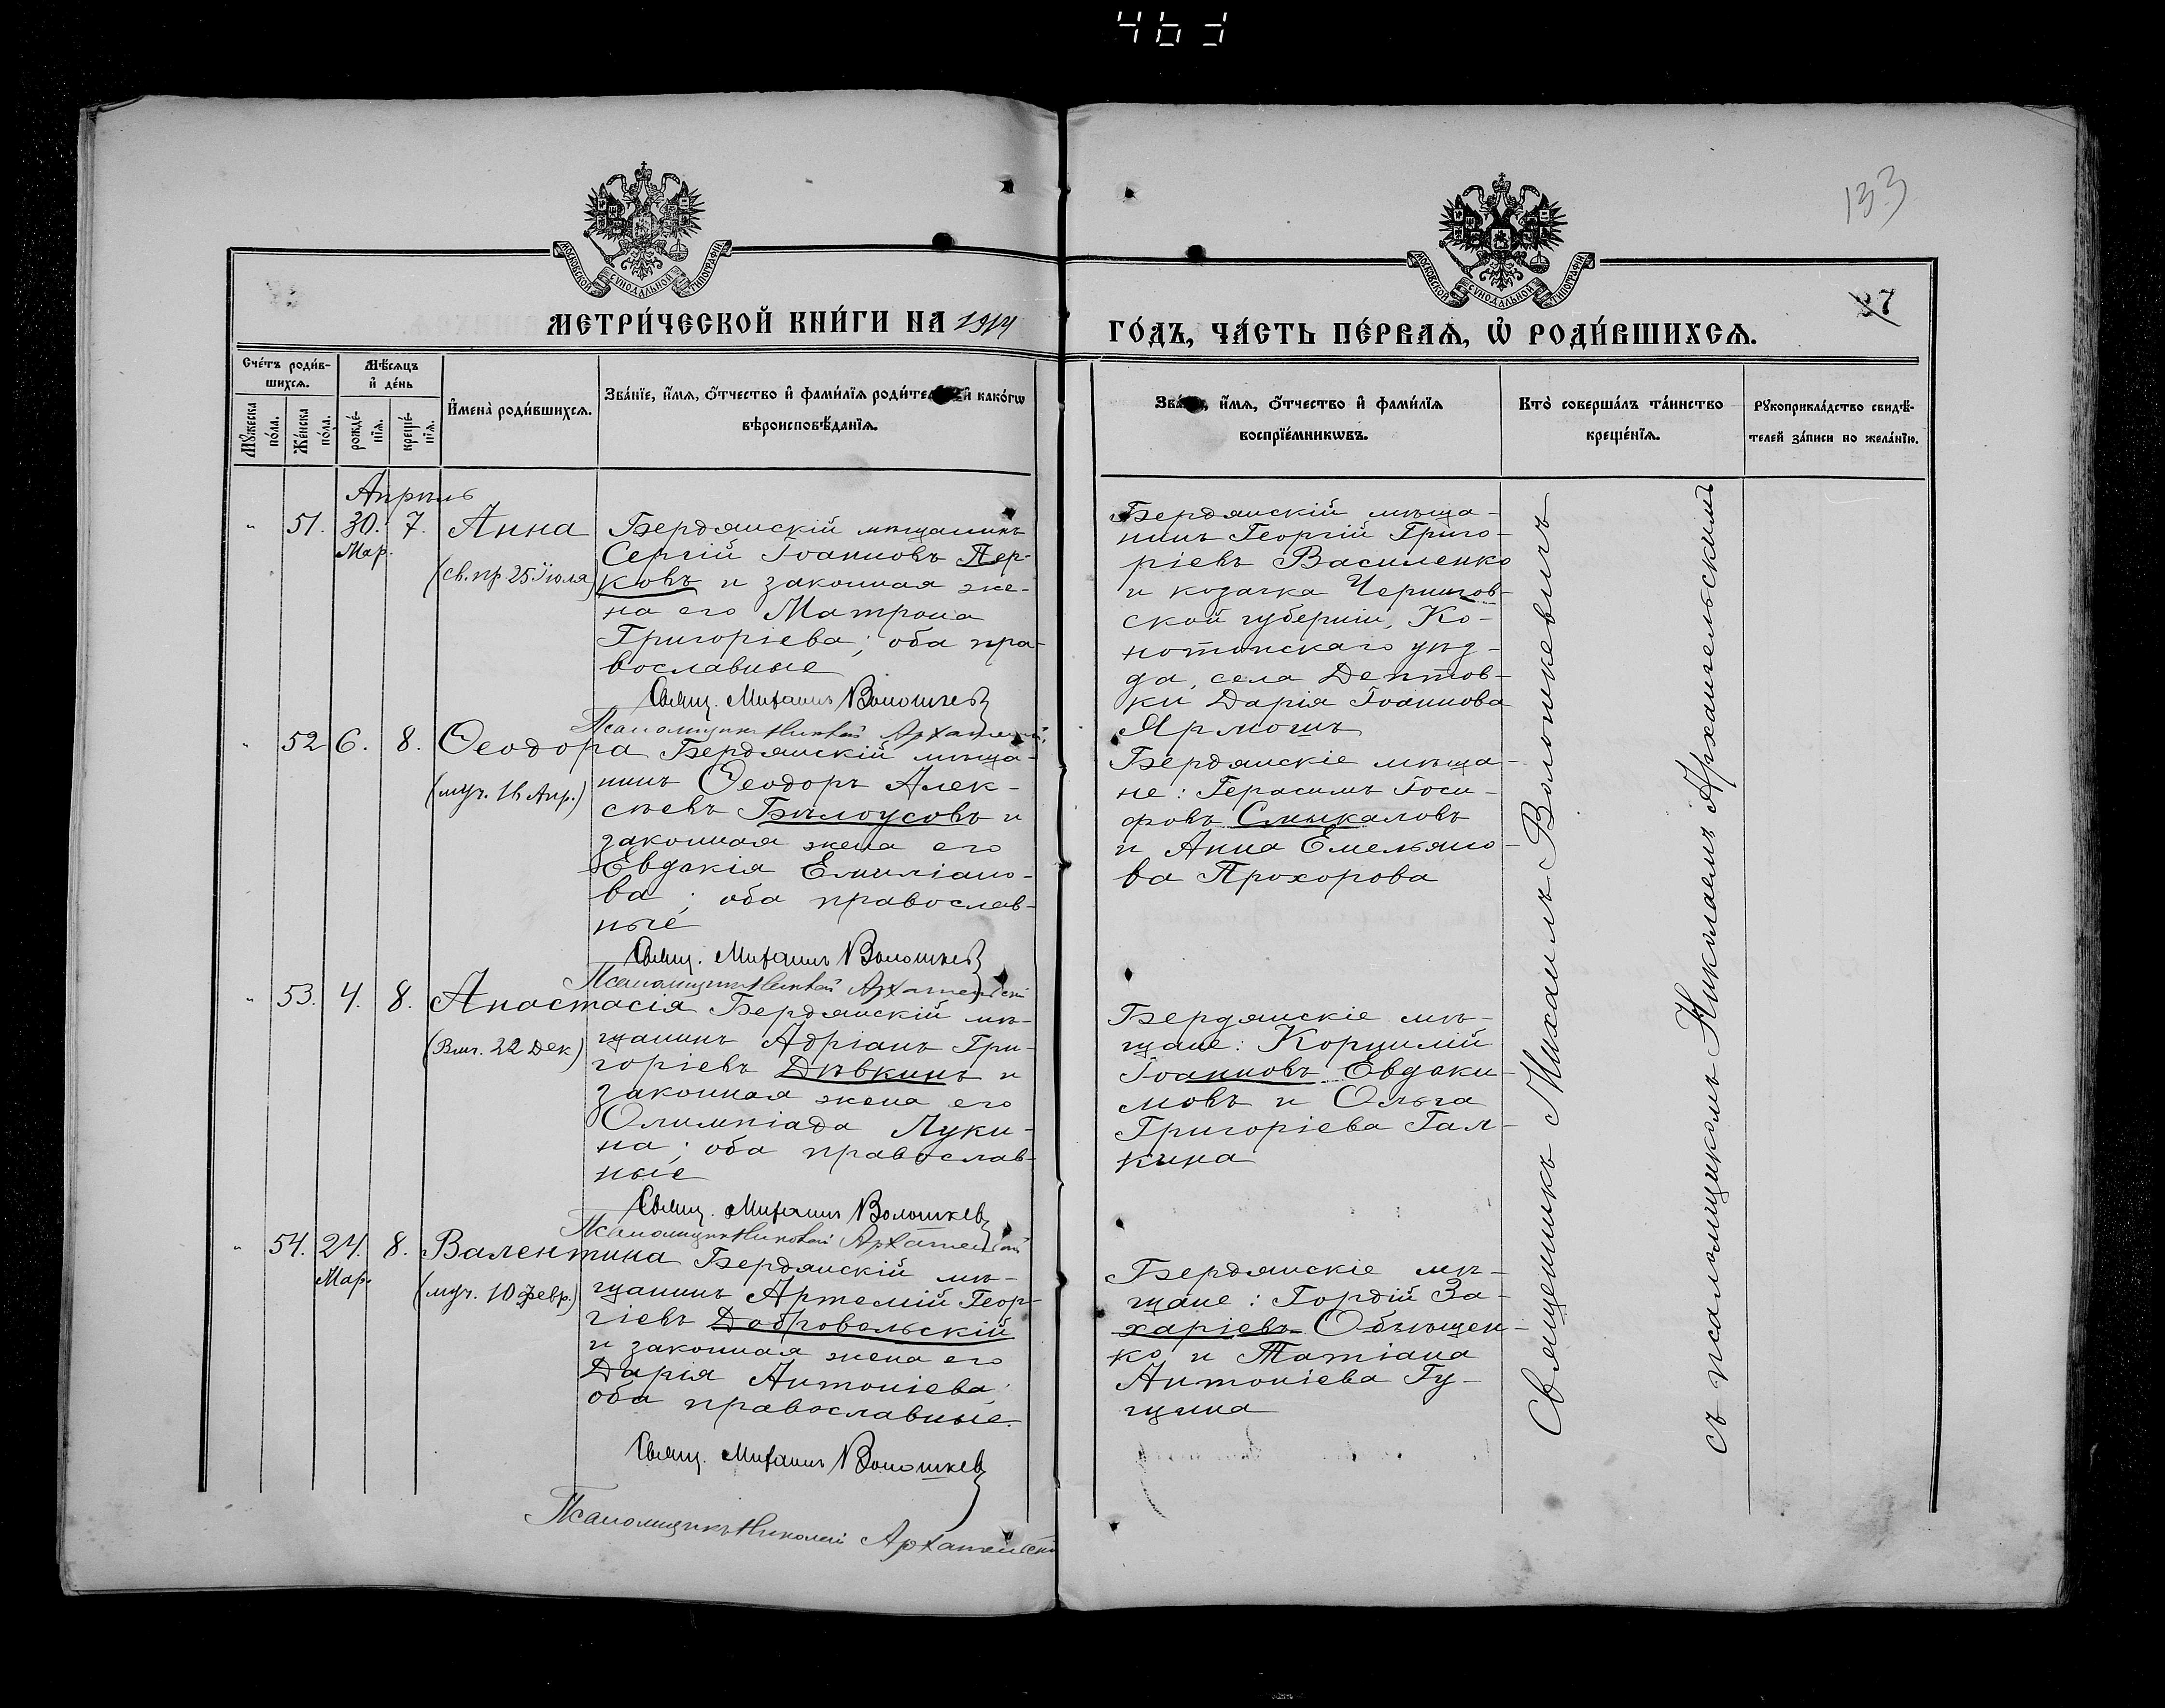 133
МОСКОВСКОЙ СѴНОДАЛЬНОЙ ТИПОГРАФІИ
МОСКОВСКОЙ СѴНОДАЛЬНОЙ ТИПОГРАФІИ
МЕТРИ́ЧЕСКОЙ КНИ́ГИ НА 1914
ГО́ДЪ, ЧА́СТЬ ПЕ́РВАѦ, Ѡ҆ РОДИ́ВШИХСѦ.
27
Сче́тъ роди́в-
шихсѧ.
Мꙋ́жеска
по́ла.
Же́нска
по́ла.
Мѣ́сѧцъ
и҆ де́нь
рожде́-
нїѧ.
креще́-
нїѧ.
И҆мена̀ роди́вшихсѧ.
Зва́нїе, и҆́мѧ, ѻ҆́тчество и҆ фами́лїѧ роди́те и҆ како́гѡ
вѣроисповѣ́данїѧ.
и҆́мѧ, ѻ҆́тчество и҆ фами́лїѧ
воспрїе́мникѡвъ.
Кто̀ соверша́лъ та́инство
креще́нїѧ.
Рꙋкоприкла́дство свидѣ́-
телей за́писи по жела́нїю.
Апрѣль
" 51. 30. 7. Анна
Мар.
(св. пр 25 Iюля)
Бердянскій мѣщанинъ
Сергій Іоанновъ Пер-
ковъ и законная же-
на его Матрона
Григоріева; оба пра-
вославные
Свящ. Михаилъ Волошкевичъ
Псаломщикъ Николай Архангельскій
Бердянскій мѣща-
нинъ Георгій Григо-
ріевъ Василенко
и козачка Чернигов-
ской губерніи, Ко-
нотопскаго уѣз-
да, села Дептов-
ки Дарія Іоаннова
Ярмошъ
" 52 6. 8. Ѳеодора
(муч. 16 Апр.)
Бердянскій мѣща-
нинъ Ѳеодоръ Алек-
сѣевъ Бѣлоусовъ и
законная жена его
Евдокія Емиліано-
ва; оба православ-
ные
Свящ. Михаилъ Волошкевичъ
Псаломщикъ Николай Архангельскій
Бердянскіе мѣща-
не: Герасимъ Іоси-
фовъ Смыкаловъ
и Анна Емельяно-
ва Прохорова
" 53. 4. 8. Анастасія
(Вмч. 22 Дек)
Бердянскій мѣ-
щанинъ Адріанъ Гри-
горіевъ Дѣвкинъ и
законная жена его
Олимпіада Луки-
на; оба православ-
ные
Свящ. Михаилъ Волошкевичъ
Псаломщикъ Николай Архангельскій
Бердянскіе мѣ-
щане: Корнилій
Іоанновъ Евдоки-
мовъ и Ольга
Григоріева Гал-
кина
" 54. 24. 8. Валентина
Мар.
(муч. 10 февр.)
Бердянскій мѣ-
щанинъ Артемій Геор-
гіевъ Добровольскій
и законная жена его
Дарія Антоніева;
оба православные.
Свящ. Михаилъ Волошкевичъ
Псаломщикъ Николай Архангельскій
Бердянскіе мѣ-
щане: Гордій За-
харіевъ Объѣщен-
ко и Татіана
Антоніева Гу-
щина
Священникъ Михаилъ Волошкевичъ
съ псаломщикомъ Николаемъ Архангельскимъ